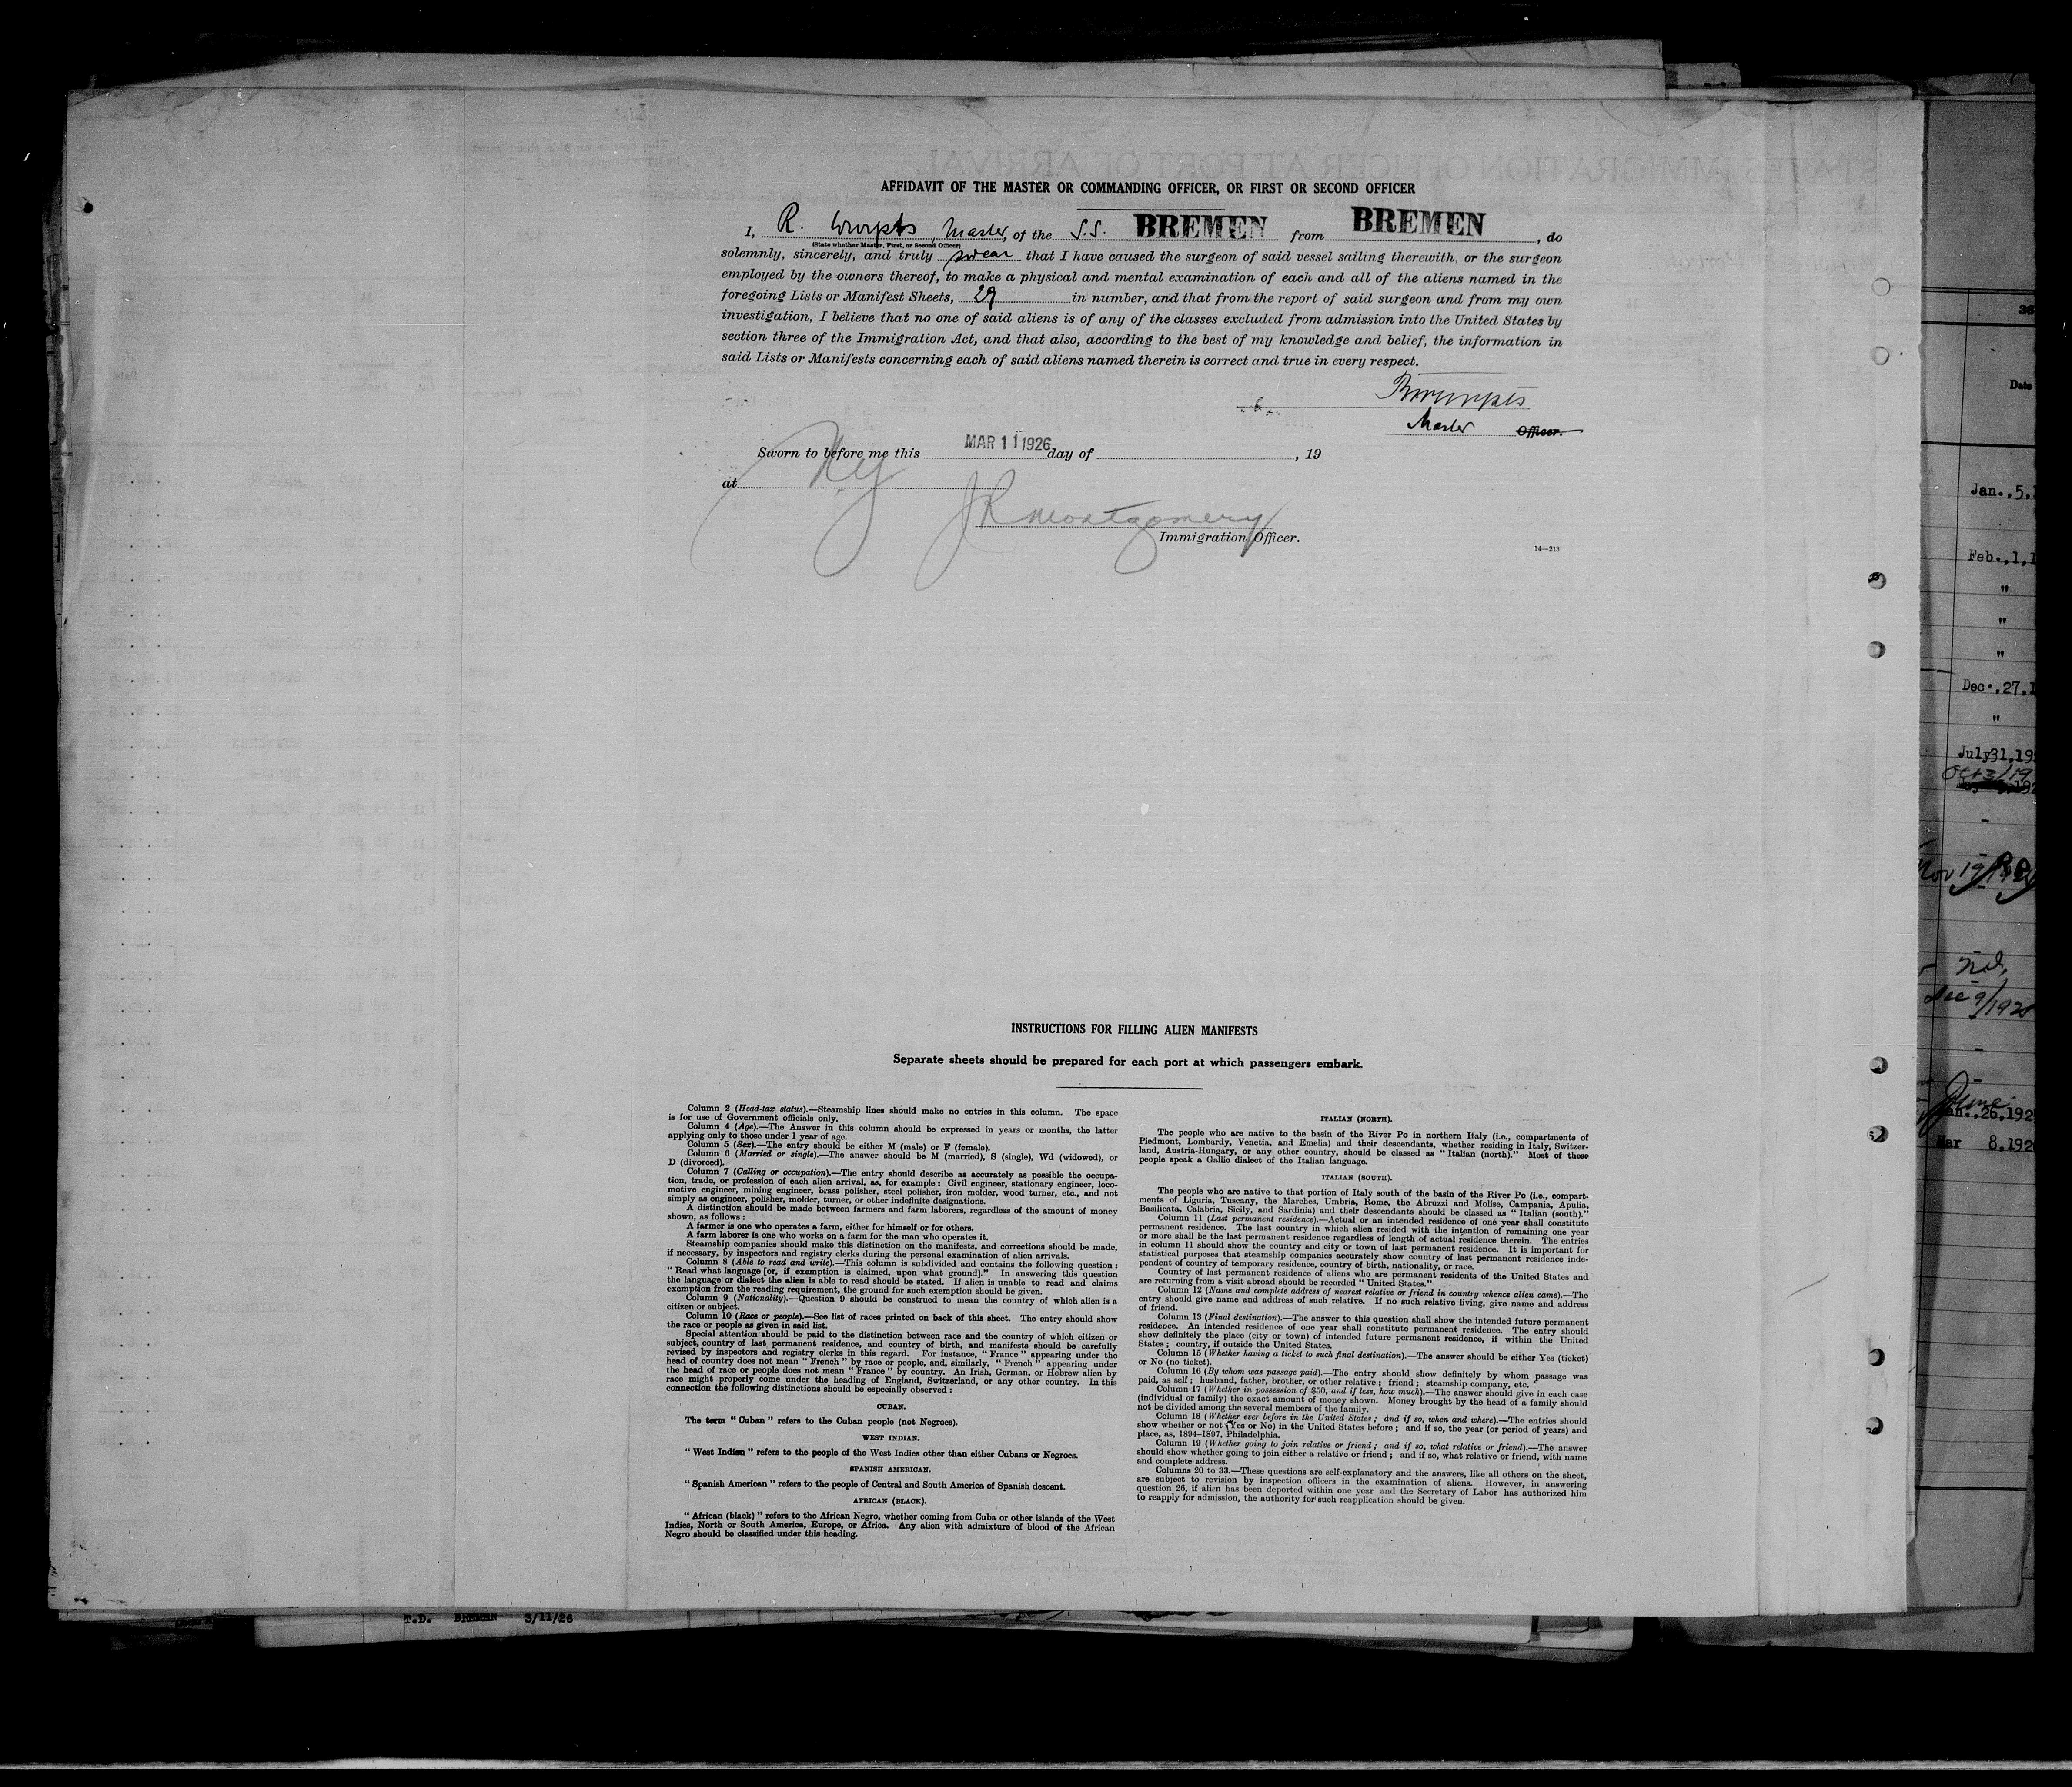 AFFIDAVIT OF THE MASTER OR COMMANDING OFFICER, OR FIRST OR SECOND OFFICER
I, R. Wurpts, Master, of the S.S. BREMEN from BREMEN, do
(State whether Master, First, or Second Officer)
solemnly, sincerely, and truly swear that I have caused the surgeon of said vessel sailing therewith, or the surgeon
employed by the owners thereof, to make a physical and mental examination of each and all of the aliens named in the
foregoing Lists or Manifest Sheets, 29 in number, and that from the report of said surgeon and from my own
investigation, I believe that no one of said aliens is of any of the classes excluded from admission into the United States by
section three of the Immigration Act, and that also, according to the best of my knowledge and belief, the information in
said Lists or Manifests concerning each of said aliens named therein is correct and true in every respect.
R Wurpts
Master Officer.
Sworn to before me this MAR 11 1926 day of , 19
at NY
JR Montgomery
Immigration Officer.
14—213
INSTRUCTIONS FOR FILLING ALIEN MANIFESTS
Separate sheets should be prepared for each port at which passengers embark.
Column 2 (Head-tax status).—Steamship lines should make no entries in this column. The space
is for use of Government officials only.
Column 4 (Age).—The Answer in this column should be expressed in years or months, the latter
applying only to those under 1 year of age.
Column 5 (Sex).—The entry should be either M (male) or F (female).
Column 6 (Married or single).—The answer should be M (married), S (single), Wd (widowed), or
D (divorced).
Column 7 (Calling or occupation).—The entry should describe as accurately as possible the occupa-
tion, trade, or profession of each alien arrival, as, for example: Civil engineer, stationary engineer, loco-
motive engineer, mining engineer, brass polisher, steel polisher, iron molder, wood turner, etc., and not
simply as engineer, polisher, molder, turner, or other indefinite designations.
A distinction should be made between farmers and farm laborers, regardless of the amount of money
shown, as follows:
A farmer is one who operates a farm, either for himself or for others.
A farm laborer is one who works on a farm for the man who operates it.
Steamship companies should make this distinction on the manifests, and corrections should be made,
if necessary, by inspectors and registry clerks during the personal examination of alien arrivals.
Column 8 (Able to read and write).—This column is subdivided and contains the following question:
"Read what language [or, if exemption is claimed, upon what ground]." In answering this question
the language or dialect the alien is able to read should be stated. If alien is unable to read and claims
exemption from the reading requirement, the ground for such exemption should be given.
Column 9 (Nationality).—Question 9 should be construed to mean the country of which alien is a
citizen or subject.
Column 10 (Race or people).—See list of races printed on back of this sheet. The entry should show
the race or people as given in said list.
Special attention should be paid to the distinction between race and the country of which citizen or
subject, country of last permanent residence, and country of birth, and manifests should be carefully
revised by inspectors and registry clerks in this regard. For instance, "France" appearing under the
head of country does not mean "French" by race or people, and, similarly, "French" appearing under
the head of race or people does not mean "France" by country. An Irish, German, or Hebrew alien by
race might properly come under the heading of England, Switzerland, or any other country. In this
connection the following distinctions should be especially observed:
CUBAN.
The term "Cuban" refers to the Cuban people (not Negroes).
WEST INDIAN.
"West Indian" refers to the people of the West Indies other than either Cubans or Negroes.
SPANISH AMERICAN.
"Spanish American" refers to the people of Central and South America of Spanish descent.
AFRICAN (BLACK).
"African (black)" refers to the African Negro, whether coming from Cuba or other islands of the West
Indies, North or South America, Europe, or Africa. Any alien with admixture of blood of the African
Negro should be classified under this heading.
ITALIAN (NORTH).
The people who are native to the basin of the River Po in northern Italy (i.e., compartments of
Piedmont, Lombardy, Venetia, and Emelia) and their descendants, whether residing in Italy, Switzer-
land, Austria-Hungary, or any other country, should be classed as "Italian (north)." Most of these
people speak a Gallic dialect of the Italian language.
ITALIAN (SOUTH).
The people who are native to that portion of Italy south of the basin of the River Po (i.e., compart-
ments of Liguria, Tuscany, the Marches, Umbria, Rome, the Abruzzi and Molise, Campania, Apulia,
Basilicata, Calabria, Sicily, and Sardinia) and their descendants should be classed as "Italian (south)."
Column 11 (Last permanent residence).—Actual or an intended residence of one year shall constitute
permanent residence. The last country in which alien resided with the intention of remaining one year
or more shall be the last permanent residence regardless of length of actual residence therein. The entries
in column 11 should show the country and city or town of last permanent residence. It is important for
statistical purposes that steamship companies accurately show country of last permanent residence inde-
pendent of country of temporary residence, country of birth, nationality, or race.
Country of last permanent residence of aliens who are permanent residents of the United States and
are returning from a visit abroad should be recorded "United States."
Column 12 (Name and complete address of nearest relative or friend in country whence alien came).—The
entry should give name and address of such relative. If no such relative living, give name and address
of friend.
Column 13 (Final destination).—The answer to this question shall show the intended future permanent
residence. An intended residence of one year shall constitute permanent residence. The entry should
show definitely the place (city or town) of intended future permanent residence, if within the United
States; country, if outside the United States.
Column 15 (Whether having a ticket to such final destination).—The answer should be either Yes (ticket)
or No (no ticket).
Column 16 (By whom was passage paid).—The entry should show definitely by whom passage was
paid, as self; husband, father, brother, or other relative; friend; steamship company, etc.
Column 17 (Whether in possession of $50, and if less, how much).—The answer should give in each case
(individual or family) the exact amount of money shown. Money brought by the head of a family should
not be divided among the several members of the family.
Column 18 (Whether ever before in the United States; and if so, when and where).—The entries should
show whether or not (Yes or No) in the United States before; and if so, the year (or period of years) and
place, as, 1894-1897, Philadelphia.
Column 19 (Whether going to join relative or friend; and if so, what relative or friend).—The answer
should show whether going to join either a relative or friend; and if so, what relative or friend, with name
and complete address.
Columns 20 to 33.—These questions are self-explanatory and the answers, like all others on the sheet,
are subject to revision by inspection officers in the examination of aliens. However, in answering
question 26, if alien has been deported within one year and the Secretary of Labor has authorized him
to reapply for admission, the authority for such reapplication should be given.
36
Date
Jan.,5,1
Feb.,1,1
"
"
"
Dec.,27,1
"
July31,19
Oct 3/19
Nov 19/192
Dec 9/192
Jan.,26,192
Mar 8,192
T.D. BREMEN 3/11/26